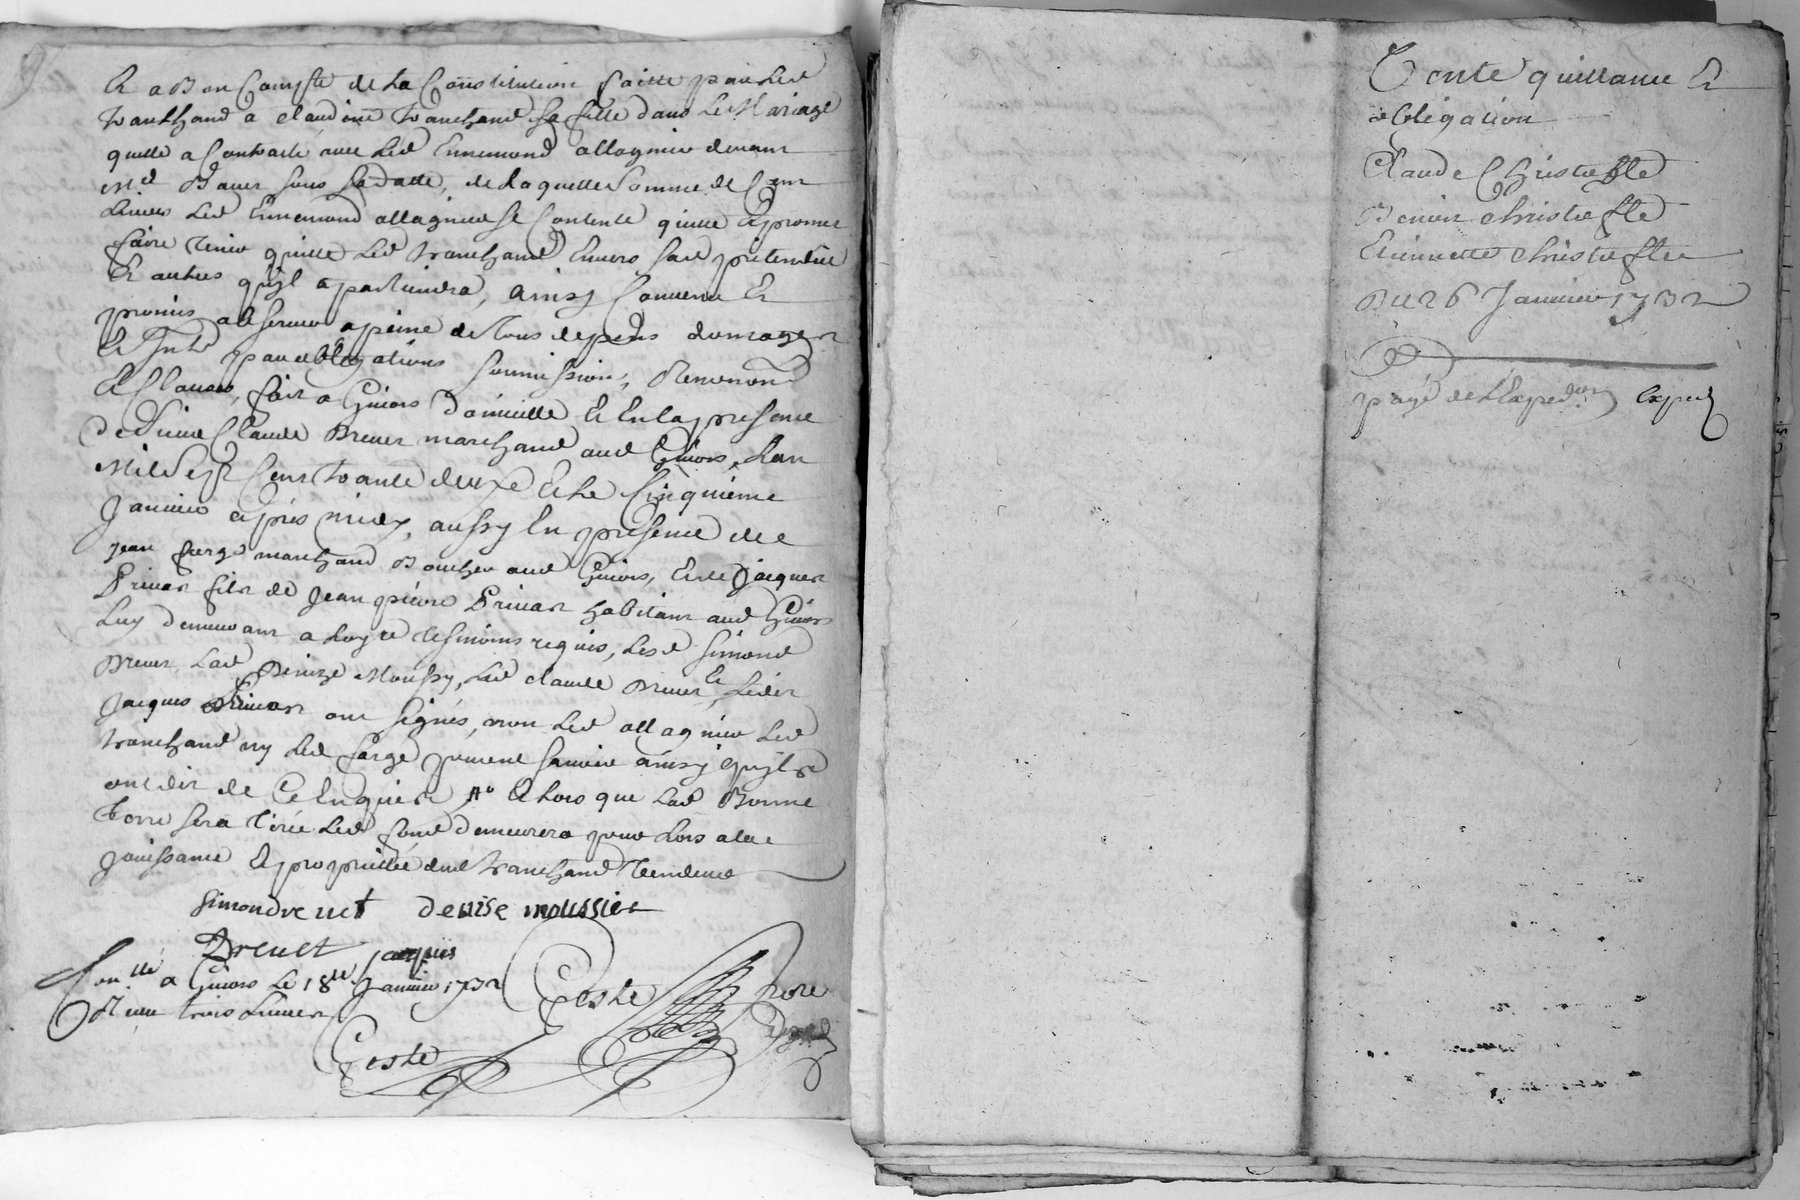 Et a Bon Compte de La Constitution faitte par Led
tranchand a claudine tranchand sa fille dans Le Mariage
quelle a Contracté avec Led Ennemond allagnier devant
Me Baver sous sa datte, de laquelle somme de Cent
Livres Led Ennemond allagnier se Contente quitte Et promet
faire tenir quitte Led tranchand Envers sad pretendue
Et autres qu'jl apartiendra, ainsy Convenu Et
promis observer a peine de tous depens domages
Et Jnts par obligations soumissions, Renonons
Et Clauses, fait a Givors domicille Et En la presence
de Sieur Claude Drevet marchand aud Givors, L'an
Mil Sept Cens trante deuxe Et Le Cinquième
Janvier après midy, aussy En presence de
jean farge marchand Boucher aud Givors, Et de jacques
Privas fils de Jean pierre Privas habitant aud Givors
Luy demeurant a Loyre tesmoins requis, Led Simond
Drevet, Lad Denize Moussy, Led claude Drevet, Et Led
Jacques Privas ont signés, non Led allagnier Led
tranchand ny Led farge pour ne savoir ainsy qu'jls
ont dit de Ce Enquis Et Lors que Lad Bonne
terre sera tirée Led fond demeurera pour Lors a la
jouissance Et proprietté dud tranchand Vendeur
Simondrevet denise moussier
Drevet jacques
Conllé a Givors Le 18e Janvier 1732
Reçu trois Livres
Coste
Coste
Vente quittance Et
obligation
Claude Christofle
Benoit christofle
Etiennette christofle
Du 26 Janvier 1732
payé de L'Expedon Exped